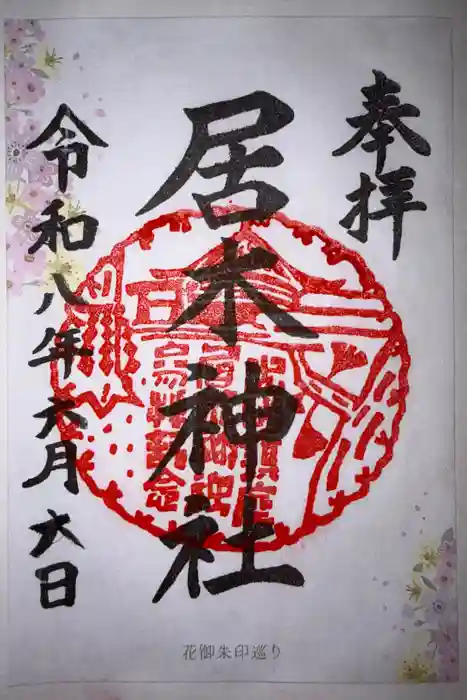 奉拝
居木神社
令和八年六月六日
花御朱印巡り